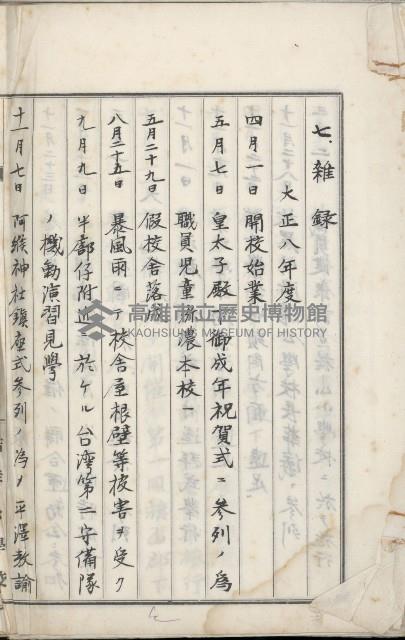 七、雑録
大正八年度
四月一日 開校始業
五月七日 皇太子殿下御成年祝賀式ニ参列ノ為
職員児童 濃本校ー
五月二十九日 假校舎落成
八月二十五日 暴風雨ニテ校舎屋根壁等被害ヲ受ク
九月九日 半廓仔附近ニ於ケル台湾第二守備隊
ノ機動演習見学
十一月七日 阿緱神社鎮座式参列ノ為メ平澤教諭
高雄市立歷史博物館
KAOHSIUNG MUSEUM OF HISTORY